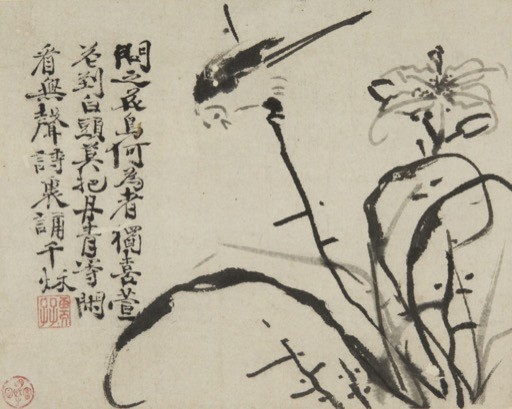 問之花鳥何為者獨喜萱
花到白頭莫把丹青等閒
看無聲詩裏誦千秌